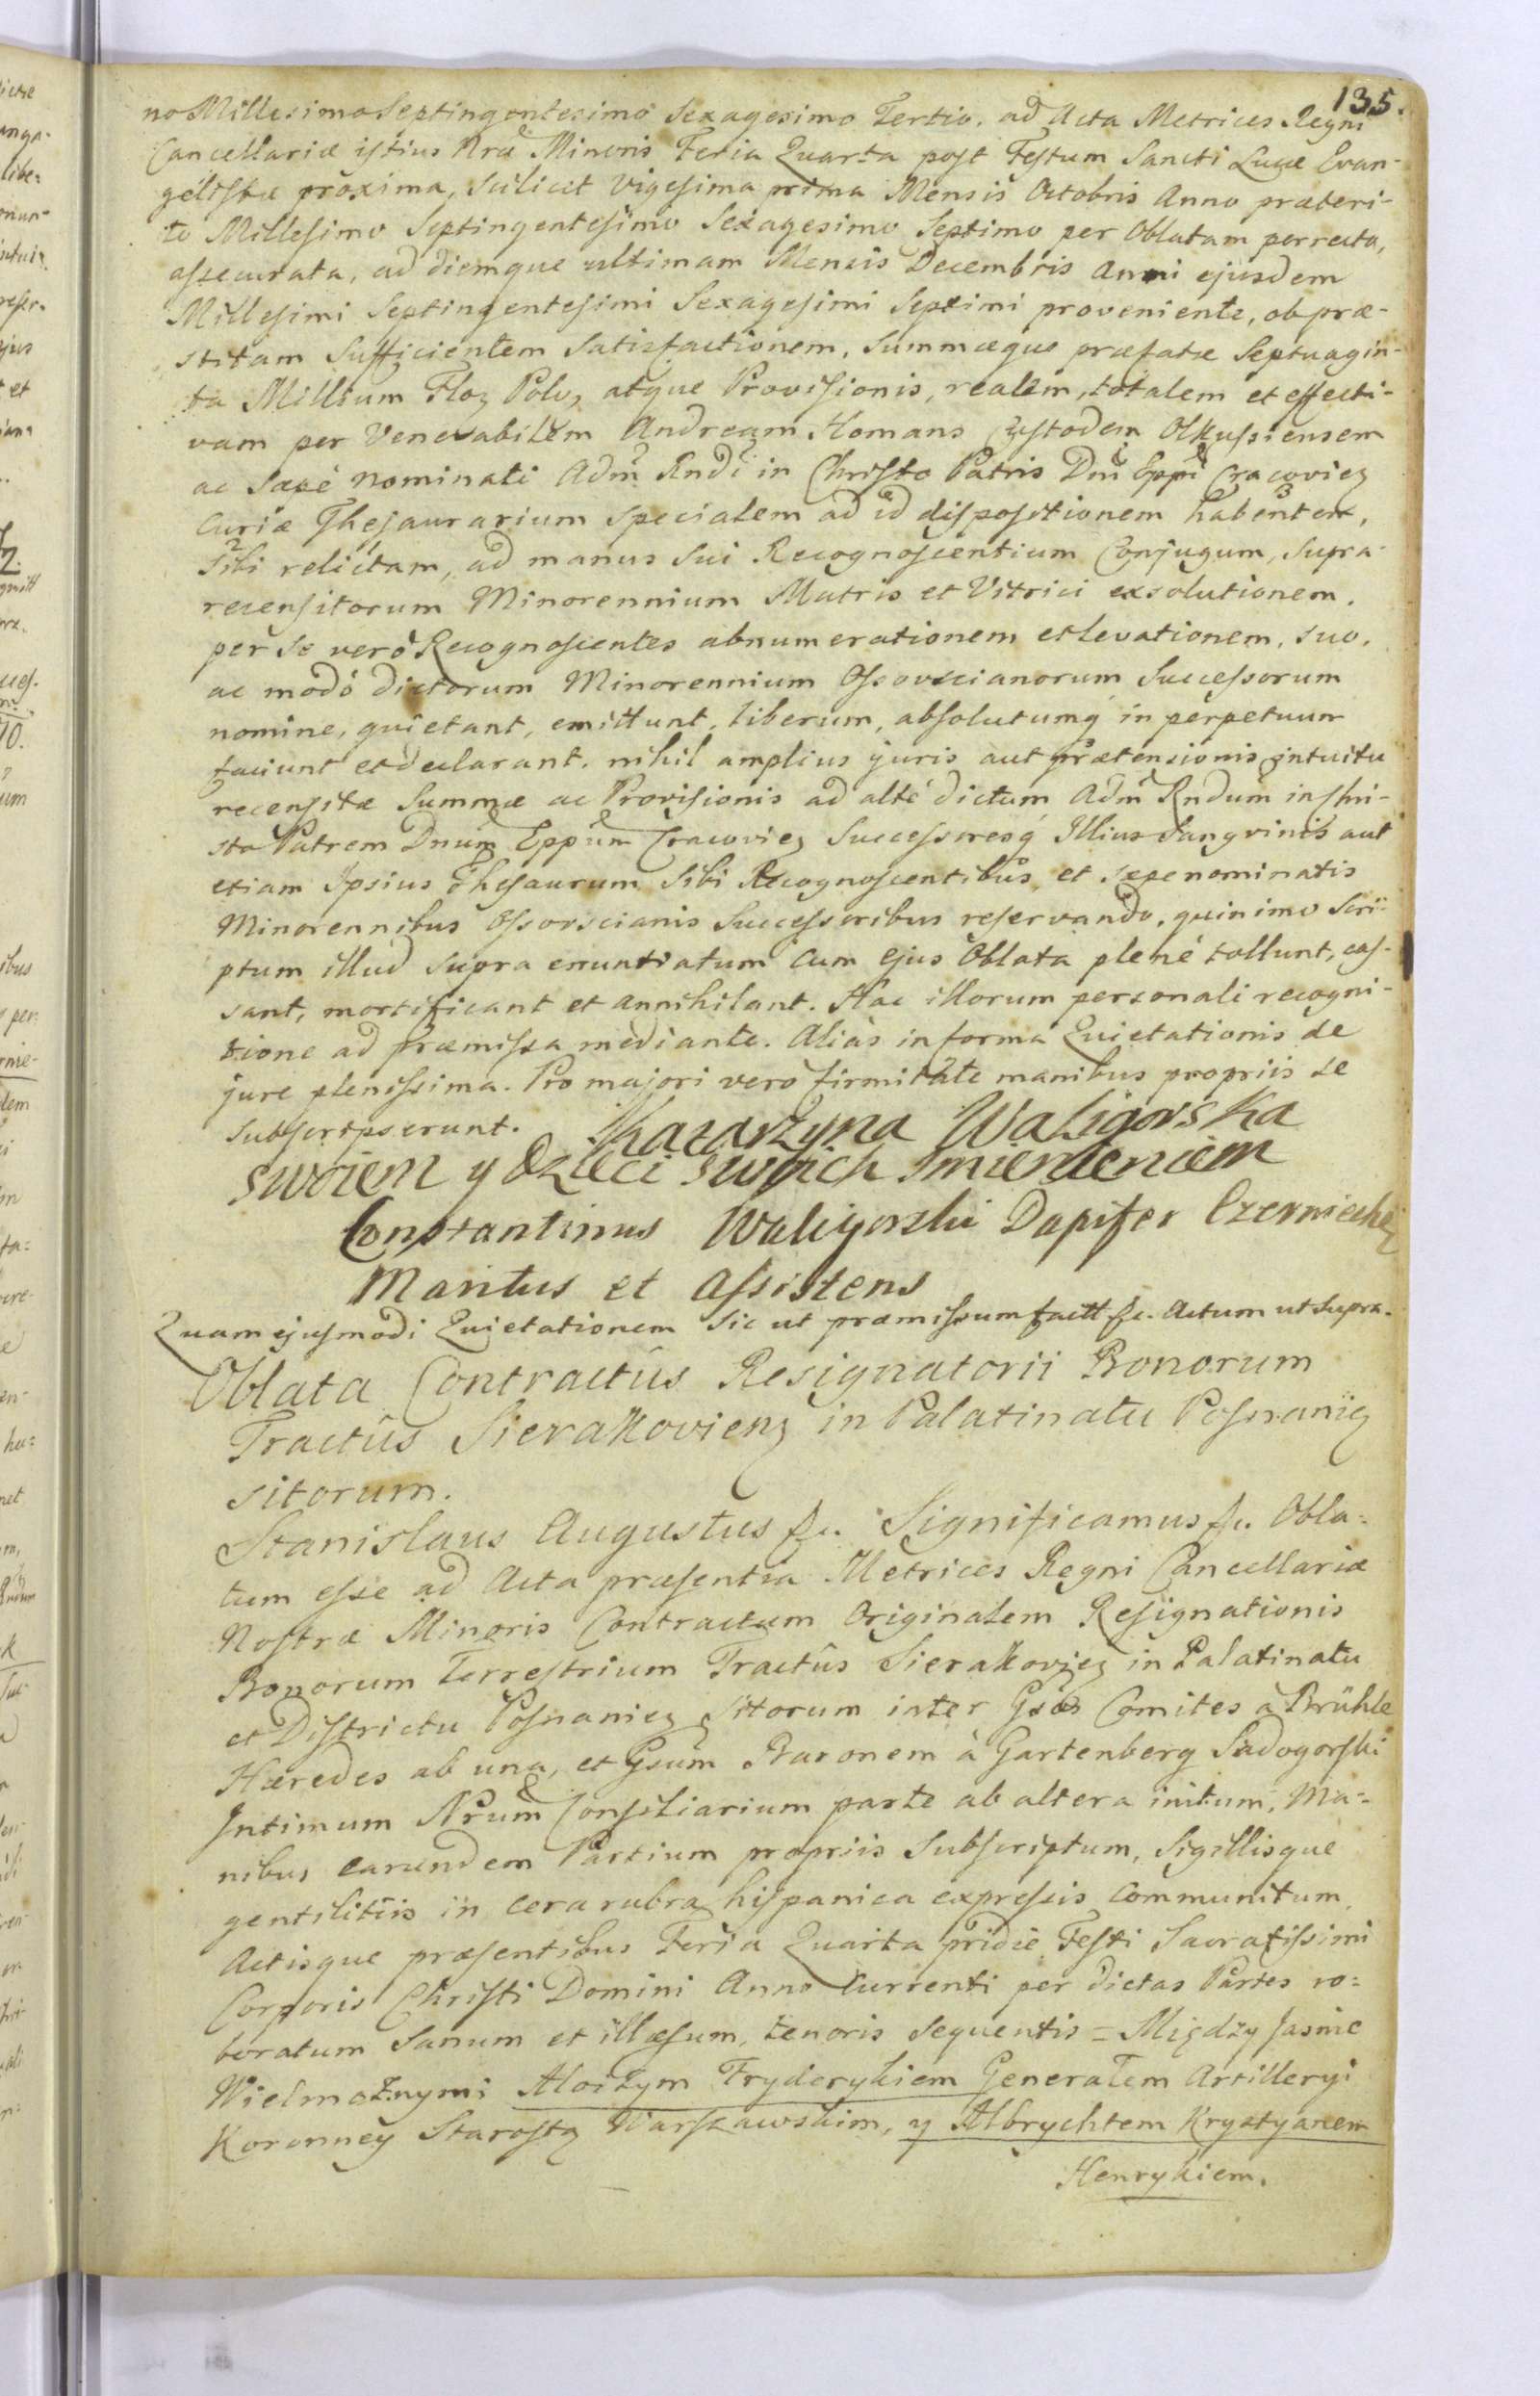 135.
no Millesimo Septingentesimo Sexagesimo Tertio. ad Acta Metrices Regni
Cancellariæ istius Nræ Minoris Feria Quarta post Festum Sancti Lucæ Evan-
gelistæ proxima, scilicet vigesima prima Mensis Octobris Anno præteri-
to Millesimo Septingentesimo Sexagesimo Septimo per Oblatam porrecta,
assecurata, ad diemque ultimam Mensis Decembris Anni ejusdem
Millesimi Septingentesimi Sexagesimi Septimi proveniente, ob præ-
stitam sufficientem satisfactionem, summæque præfatæ Septuagin-
ta Millium Floz Polo, atque Provisionis, realem, totalem et effecti-
vam per Venerabilem Andream Homans Custodem Olkussiensem
ac sæpè nominati Adm Rndi in Christo Patris Dni Eppi Cracovien
Curiæ Thesaurarium specialem ad id dispositionem habentem,
sibi relictam, ad manus sui Recognoscentium Conjugum, supra-
recensitorum Minorennium Matris et Vitrici exsolutionem.
per se verò Recognoscentes abnumerationem et levationem, suo,
ac modò dictorum Minorennium Ossovscianorum Successorum
nomine, quietant, emittunt, liberum, absolutumq in perpetuum
faciunt et declarant. nihil amplius juris aut prætensionis intuitu
recensitæ Summæ ac Provisionis ad altè dictum Adm Rndum in Chri-
sto Patrem Dnum Eppum Cracovien Successoresq Illius Sangvinis aut
etiam Ipsius Thesaurum sibi Recognoscentibus et sæpenominatis
Minorennibus Ossovscianis Successoribus reservando. quinimo scri-
ptum illud supra enuntiatum cum ejus Oblata plenè tollunt, cas-
sant, mortificant et annihilant. Hac illorum personali recogni-
tione ad præmissa mediante. Aliàs in forma Quietationis de
jure plenissima. Pro majori verò firmitate manibus propriis se
subscripserunt. Katarzyna Waligorska
swoiem y dzieci swoich imienieniem
Constantinus Waligorski Dapifer Czerniechẽ
Maritus et Assistens
Quam ejusmodi Quietationem sic ut præmissum factt &c. Actum ut supra.
Oblata Contractûs Resignatorii Bonorum
Tractûs Sierakovienz in Palatinatu Posnaniz
sitorum.
Stanislaus Augustus &c. Significamus &c. Obla-
tum esse ad Acta præsentia Metrices Regni Cancellariæ
Nostræ Minoris Contractum Originalem Resignationis
Bonorum Terrestrium Tractûs Sierakoviez in Palatinatu
et Districtu Posnaniez sitorum inter Gsos Comites à Brühle
Hæredes ab una, et Gsum Baronem à Gartenberg Sadogorski
Intimum Nrum Consiliarium parte ab altera initum, Ma-
nibus earundem Partium propriis subscriptum, Sigillisque
gentilitiis in cera rubra hispanica expressis communitum,
Actisque præsentibus Feria Quarta pridie Festi Sacratissimi
Corporis Christi Domini Anno Currenti per dictas Partes ro-
boratum sanum et illæsum, tenoris sequentis = Między Jasnie
Wielmożnymi Aloizym Fryderykiem Generałem Artilleryi
Koronney Starostą Warszawskim, y Albrychtem Krystyanem
Henrykiem.